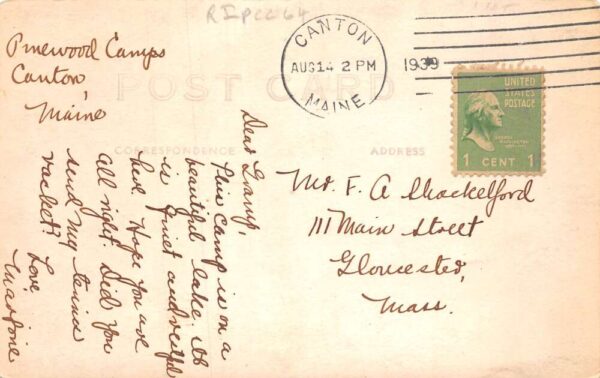 RIPCC64
Pinewood Camps
Canton,
Maine
CANTON
AUG 14 2 PM
MAINE
1939
UNITED
STATES
POSTAGE
GEORGE
WASHINGTON
1 CENT 1
POST CARD
CORRESPONDENCE
ADDRESS
Dear Gramp,
This camp is on a
beautiful lake. It
is quiet and restful
here. Hope you are
all right. Did you
send my tennis
racket?
Love,
Marjorie
Mr. F. A Shackelford
111 Main Street
Gloucester,
Mass.